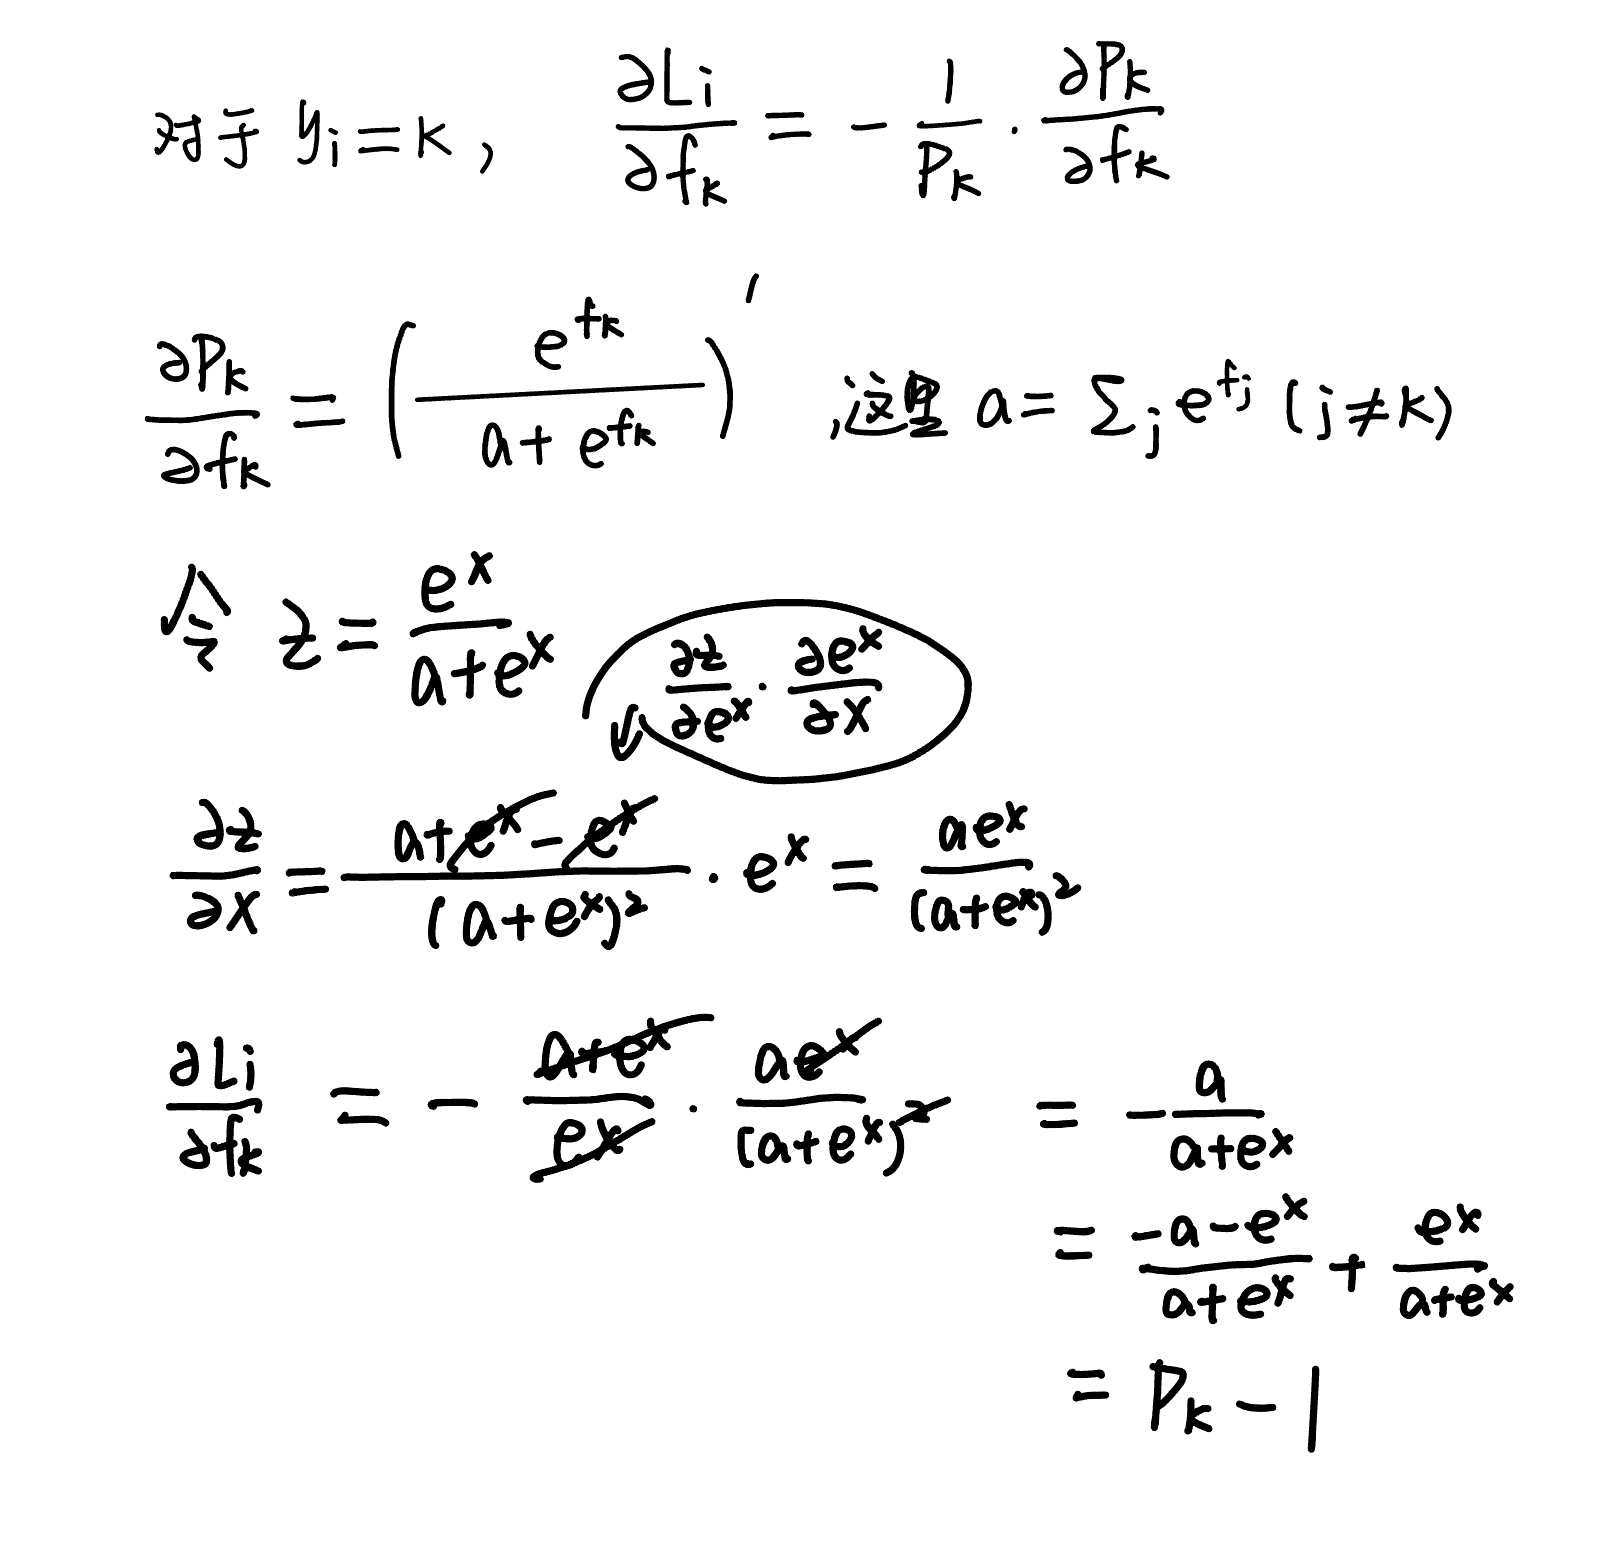 对于 yᵢ = k, ∂Lᵢ/∂fₖ = - 1/Pₖ · ∂Pₖ/∂fₖ
∂Pₖ/∂fₖ = ( e^{fₖ} / (a + e^{fₖ}) )′ ,这里 a = Σⱼ e^{fⱼ} (j≠k)
令 z = e^x / (a+e^x)
∂z/∂e^x · ∂e^x/∂x
∂z/∂x = (a+e^x - e^x) / (a+e^x)² · e^x = ae^x / (a+e^x)²
∂Lᵢ/∂fₖ = - (a+e^x)/e^x · ae^x / (a+e^x)² = - a / (a+e^x)
= (-a-e^x) / (a+e^x) + e^x / (a+e^x)
= Pₖ - 1